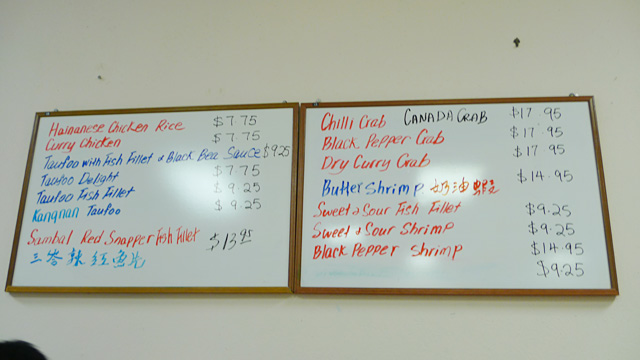 Hainanese Chicken Rice $7.75
Curry Chicken $7.75
Taufoo with Fish Fillet & Black Bea Sauce $9.25
Taufoo Delight $7.75
Taufoo Fish Fillet $9.25
Kangnan Taufoo $9.25
Sambal Red Snapper Fish Fillet $13.95
Chilli Crab CANADA CRAB $17.95
Black Pepper Crab $17.95
Dry Curry Crab $17.95
Butter Shrimp 奶油蝦 $14.95
Sweet & Sour Fish Fillet $9.25
Sweet & Sour Shrimp $9.25
Black Pepper Shrimp $14.95
$9.25